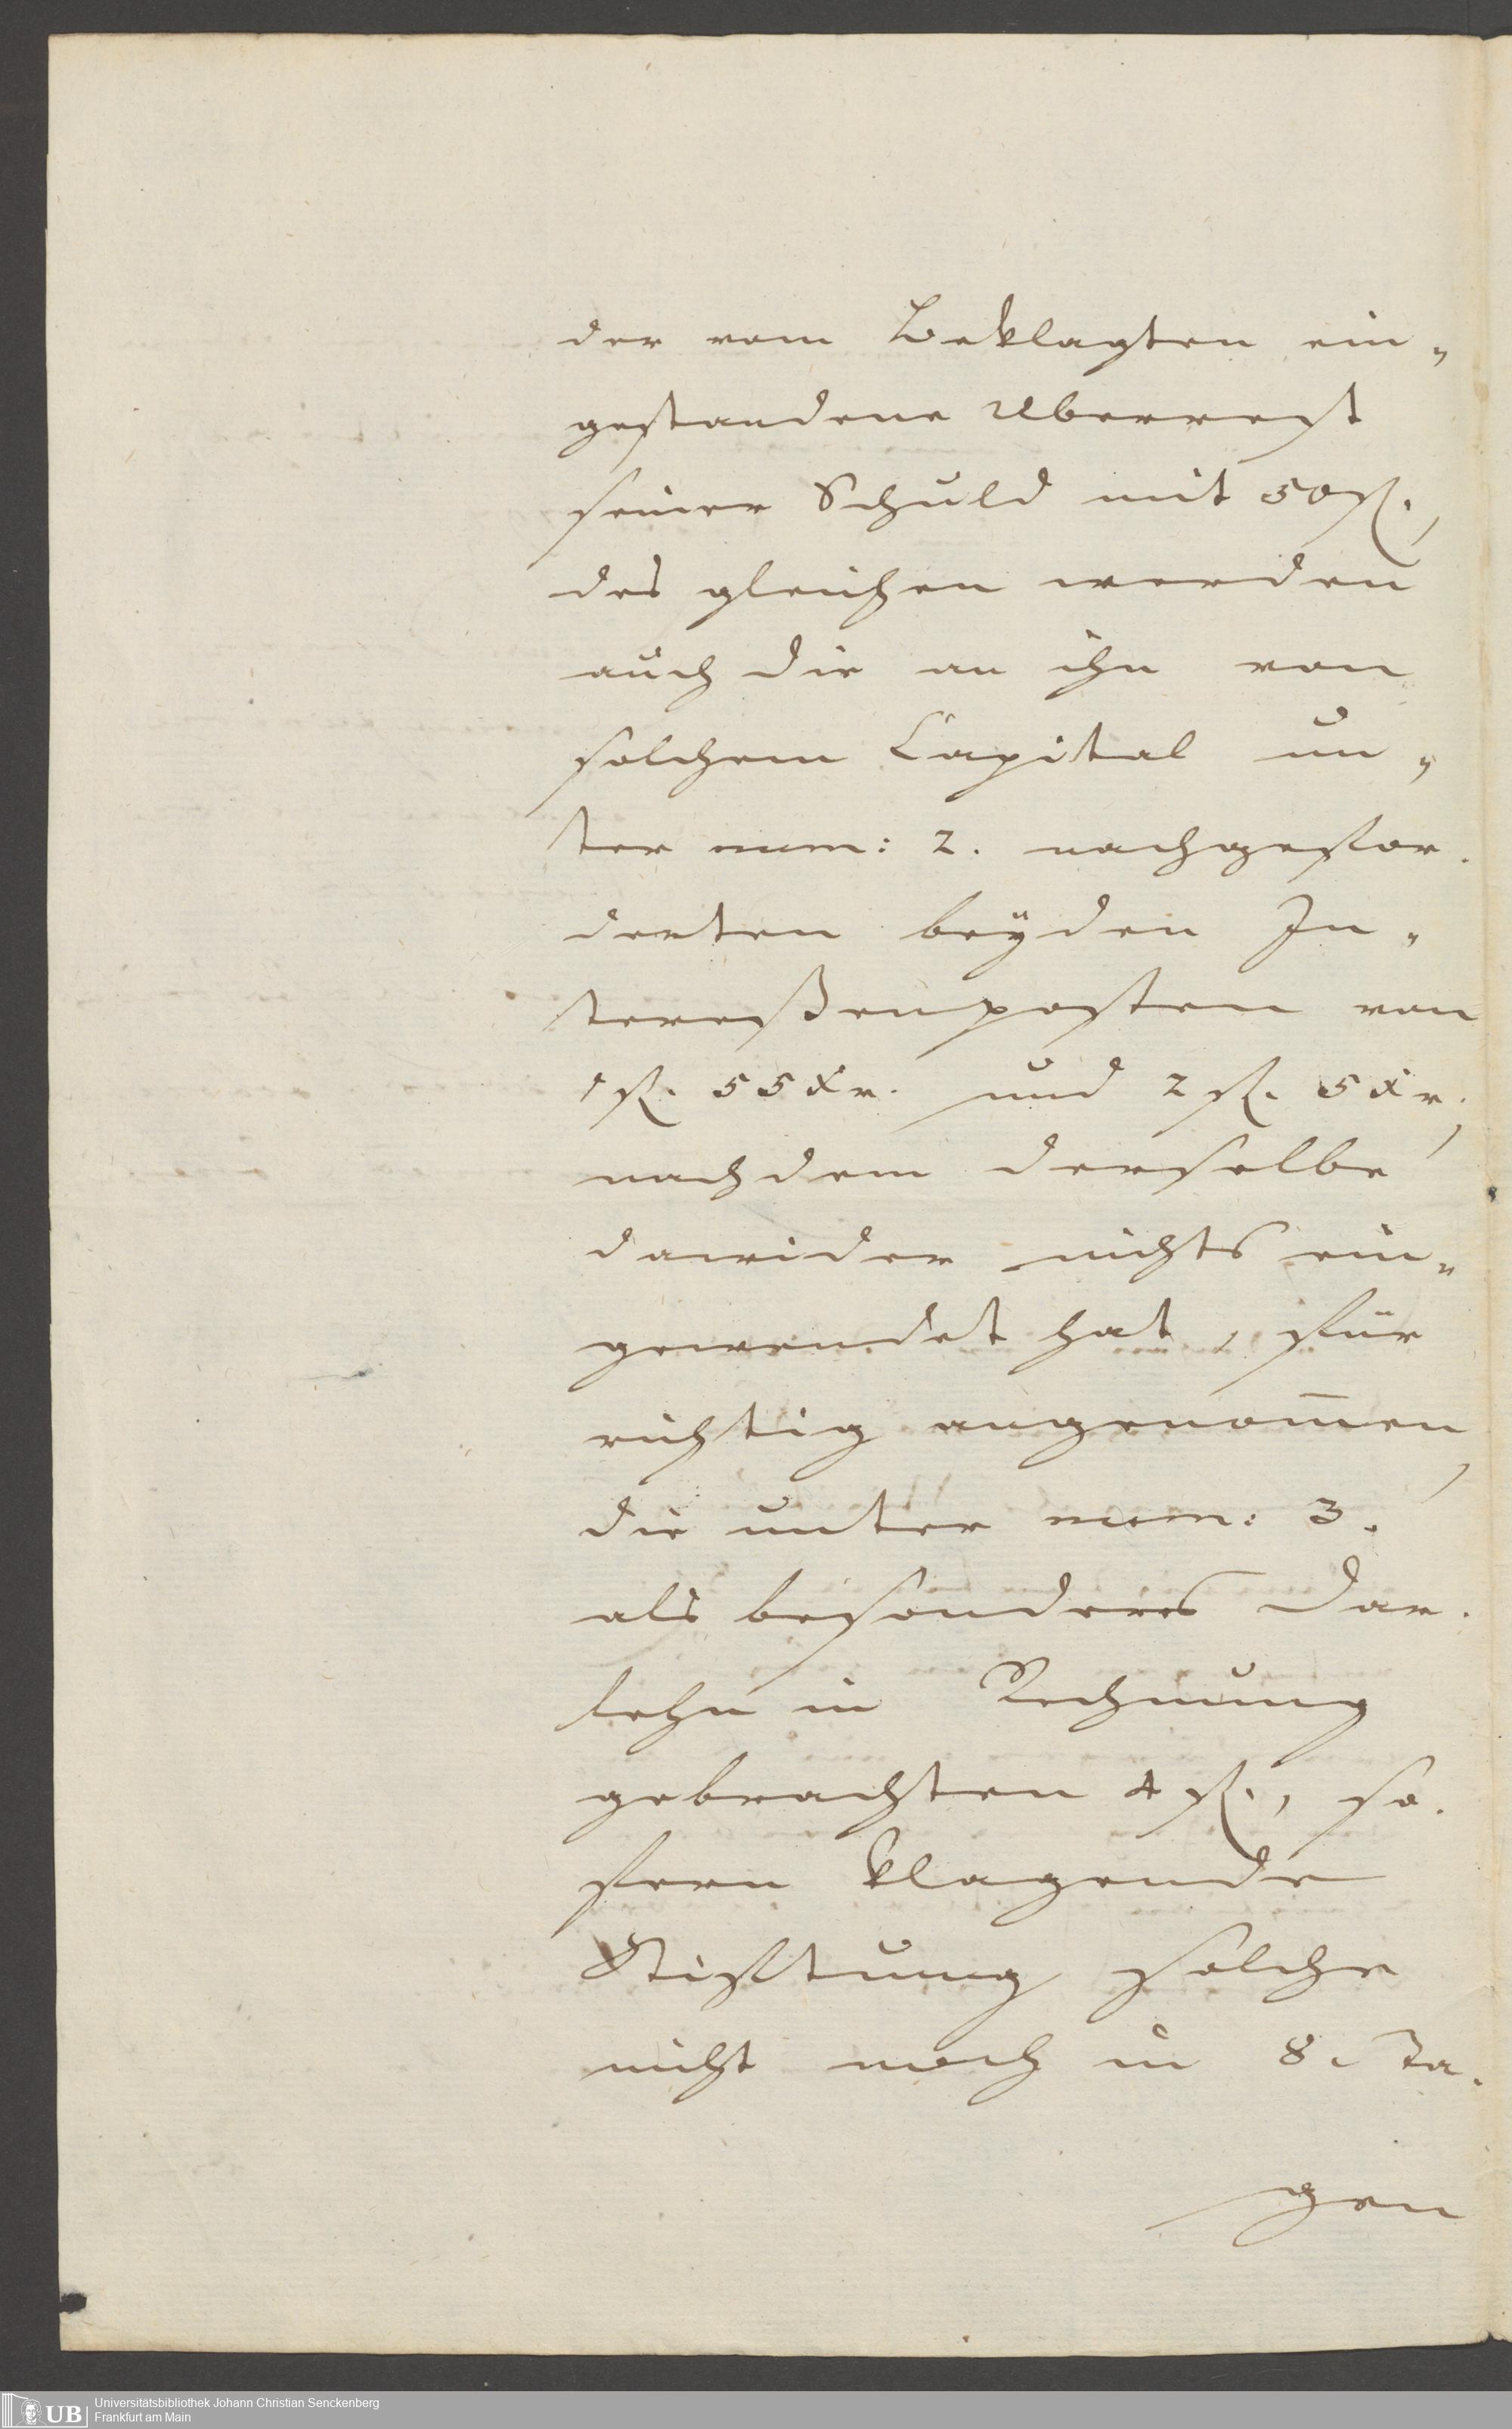 der vom Beklagten ein„
gestandene Uberrest
seiner Schuld mit 50 fl.,
des gleichen werden
auch die an ihn von
solchem Capital un„
ter num: 2. nachgefor.
derten beÿden In„
tereßenposten von
1 fl. 55 Xr. und 2 fl. 5 Xr.,
nachdem derselbe
darwider nichts ein„
gewendet hat, für
richtig angenom̅en,
die unter num: 3.
als besonders Dar.
lehn in Rechnung
gebrachten 4 fl., so.
fern klagende
Stiftung solche
nicht noch in 8. Ta.
gen
UB
Universitätsbibliothek Johann Christian Senckenberg
Frankfurt am Main